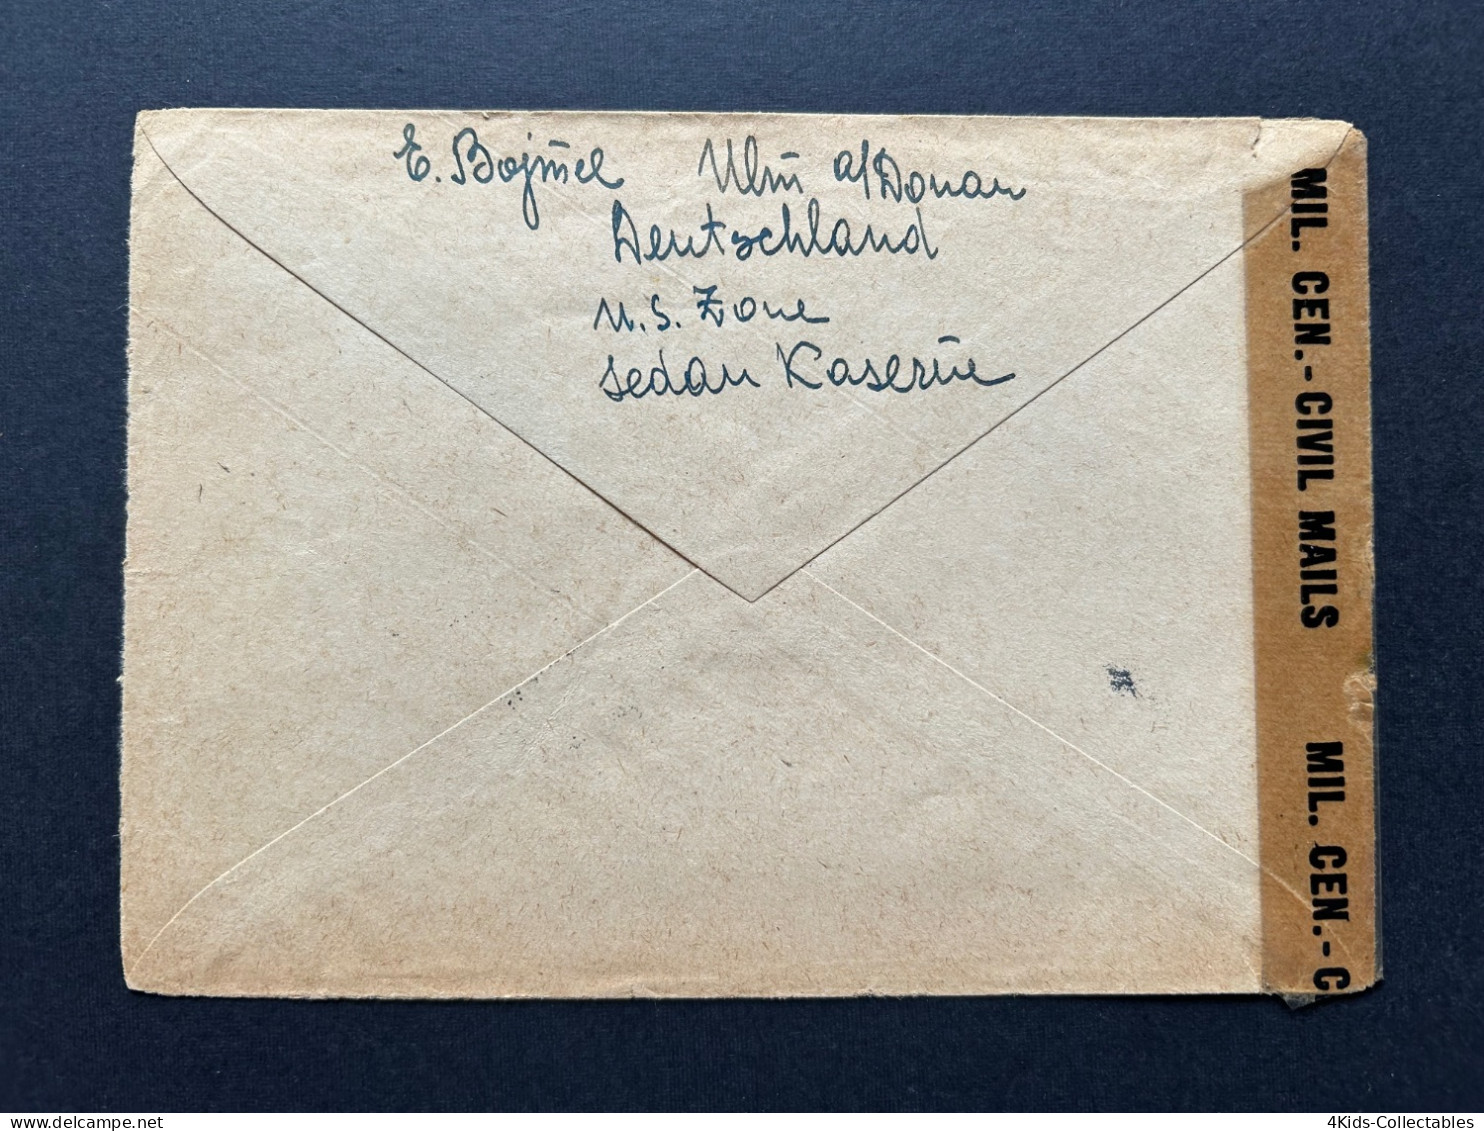 E. Bojmel Ulm a/Donau
Deutschland
U.S. Zone
Sedan Kaserne
MIL. CEN.-CIVIL MAILS MIL. CEN.-C
4Kids-Collectables